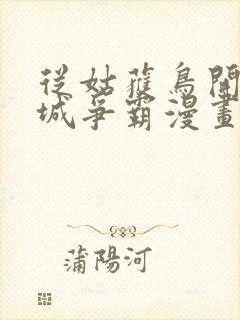 從姑獲鳥開
城爭霸漫畫
蒲陽河